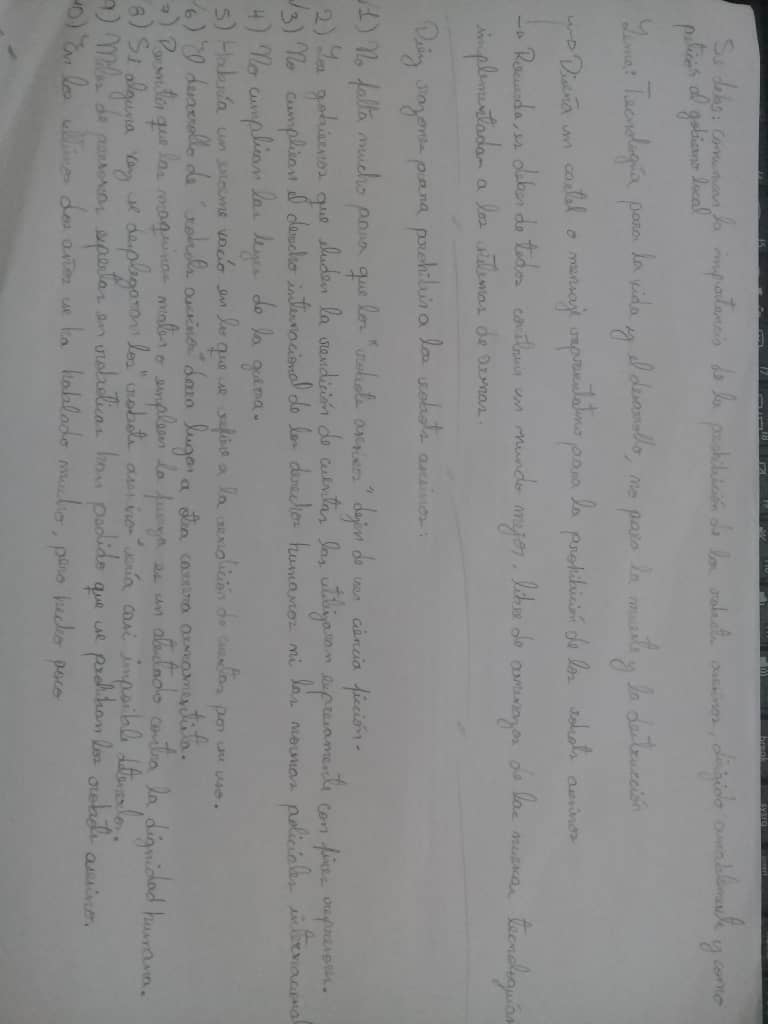 Se debe: comunicar la importancia de la prohibición de los robots asesinos, dirigido amablemente y como
petición al gobierno local
Lema: Tecnología para la vida y el desarrollo, no para la muerte y la destrucción
→ Diseña un cartel o mensaje representativo para la prohibición de los robots asesinos
→ Recuerda, es deber de todos construir un mundo mejor, libre de amenazas de las nuevas tecnologías
implementadas a los sistemas de armas.
Diez razones para prohibir a los robots asesinos:
1) No falta mucho para que los "robots asesinos" dejen de ser ciencia ficción.
2) Los gobiernos que eluden la rendición de cuentas los utilizaran expresamente con fines represivos.
3) No cumplirian el derecho internacional de los derechos humanos ni las normas policiales internacional
4) No cumplirian las leyes de la guerra.
5) Habría un enorme vació en lo que se refiere a la rendición de cuentas por su uso.
6) El desarrollo de "robots asesinos" dara lugar a otra carrera armamentista.
7) Permitir que las maquinas maten o empleen la fuerza es un atentado contra la dignidad humana.
8) Si alguna vez se desplegaran los "robots asesinos", sería casi imposible detenerlos.
9) Miles de personas expertas en robotica han pedido que se prohiban los robots asesinos.
10) En los ultimos dos años se ha hablado mucho, pero hecho poco